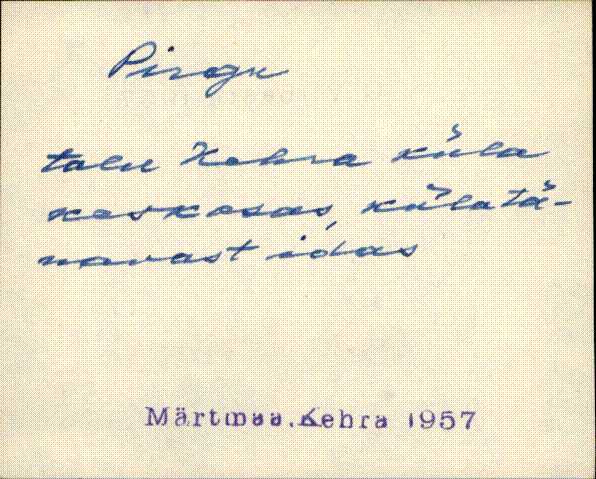 Pirogu
talu Kehra küla
keskosas, külatä-
navast idas
Märtmaa.Kehra 1957